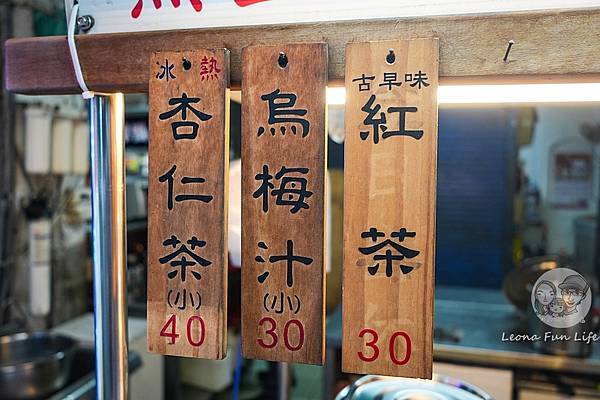 冰 熱
杏仁茶
(小)
40
烏梅汁
(小)
30
古早味
紅茶
30
Leona Fun Life